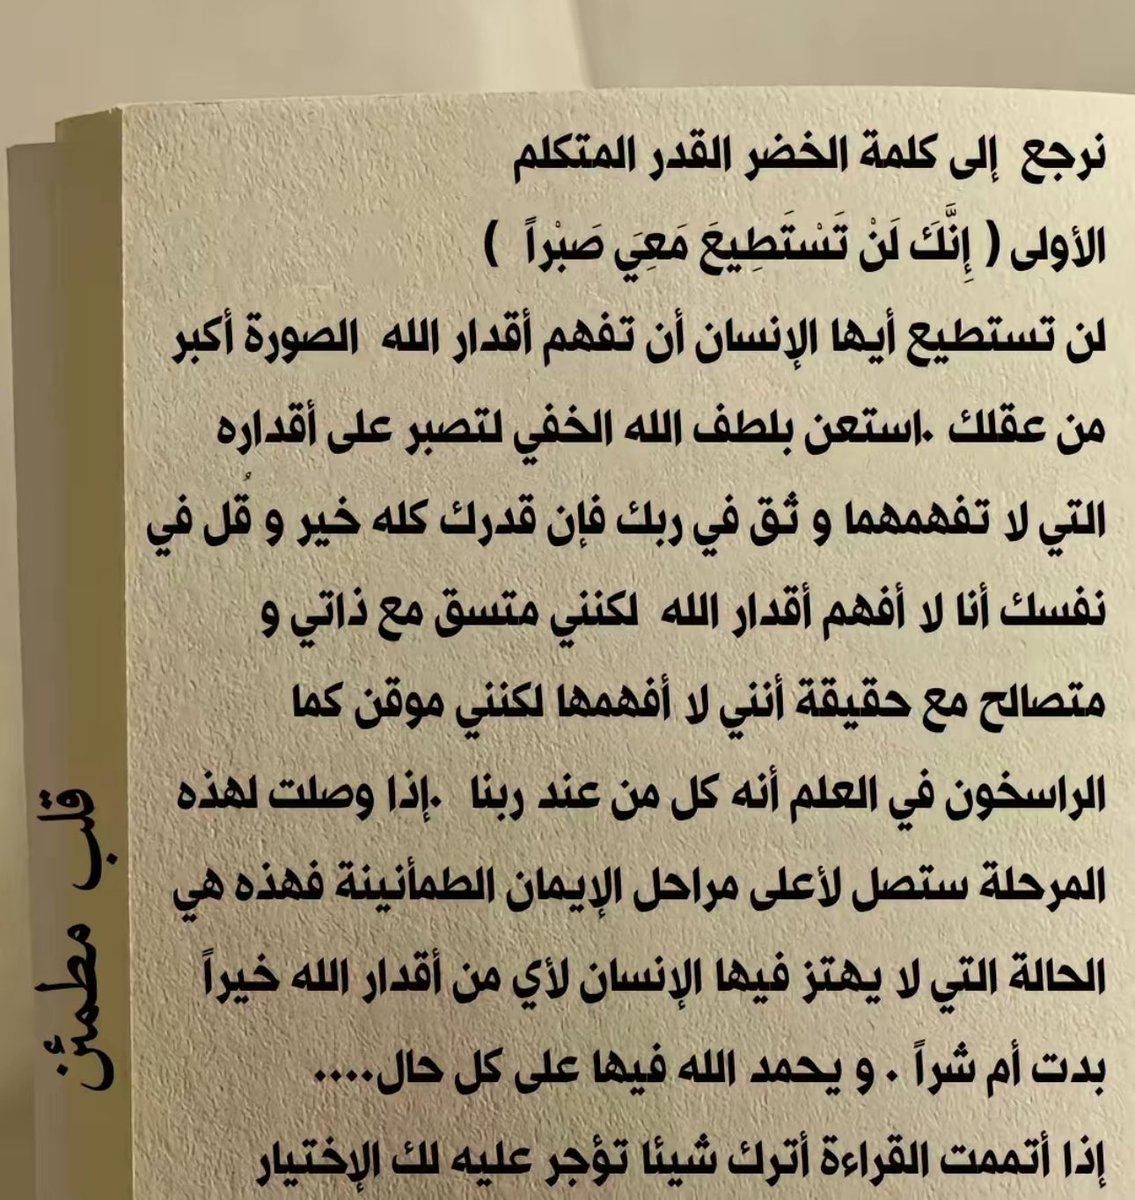 نرجع إلى كلمة الخضر القدر المتكلم
الأولى ( إِنَّكَ لَنْ تَسْتَطِيعَ مَعِيَ صَبْراً )
لن تستطيع أيها الإنسان أن تفهم أقدار الله الصورة أكبر
من عقلك .استعن بلطف الله الخفي لتصبر على أقداره
التي لا تفهمهما و ثق في ربك فإن قدرك كله خير و قُل في
نفسك أنا لا أفهم أقدار الله لكنني متسق مع ذاتي و
متصالح مع حقيقة أنني لا أفهمها لكنني موقن كما
الراسخون في العلم أنه كل من عند ربنا .إذا وصلت لهذه
المرحلة ستصل لأعلى مراحل الإيمان الطمأنينة فهذه هي
الحالة التي لا يهتز فيها الإنسان لأي من أقدار الله خيراً
بدت أم شراً . و يحمد الله فيها على كل حال....
إذا أتممت القراءة أترك شيئا تؤجر عليه لك الإختيار
قلب مطمئن